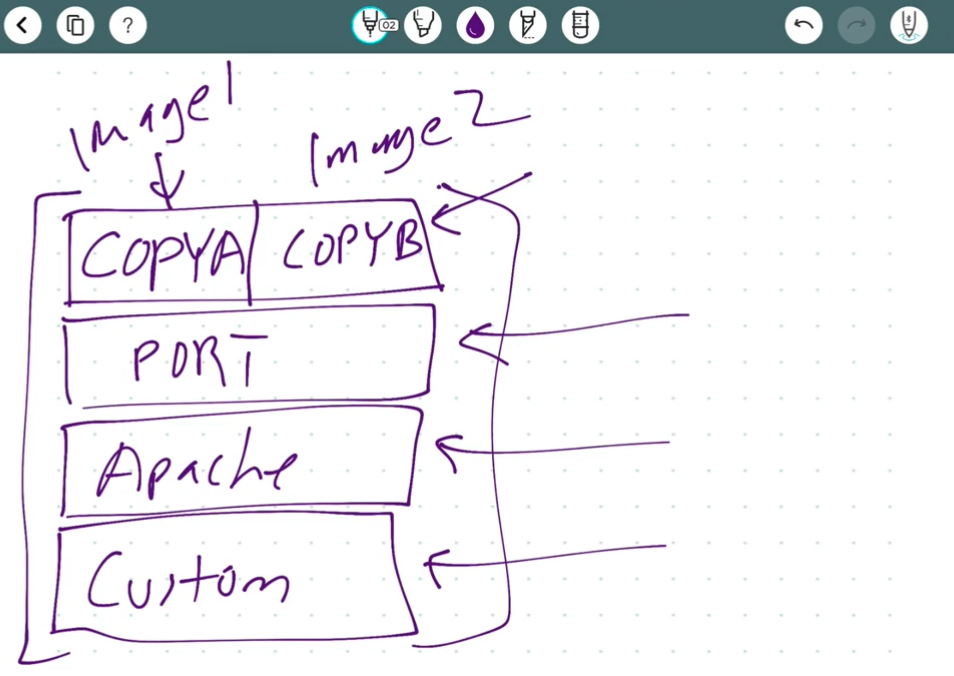 ?
02
Image1
Image2
COPYA COPYB
PORT
Apache
Custom